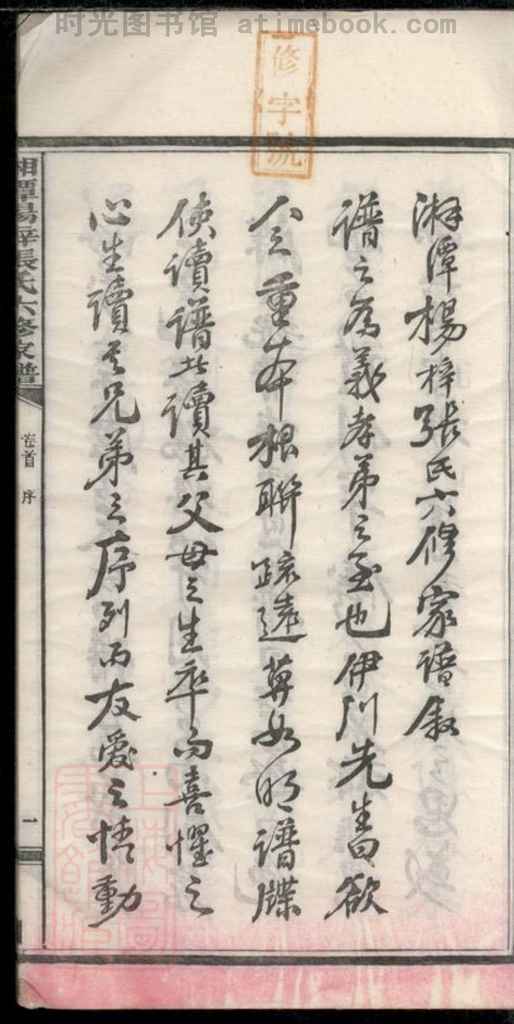 时光图书馆 atimebook.com
修字號
湘潭楊梓張氏六修家譜敘
譜之為義孝弟之至也伊川先生曰欲
人之重本根聯疏遠莫如明譜牒
使讀譜者讀其父母之生卒而喜懼之
心生讀其兄弟之序列而友愛之情動
湘潭楊梓張氏六修家譜
卷首 序
一